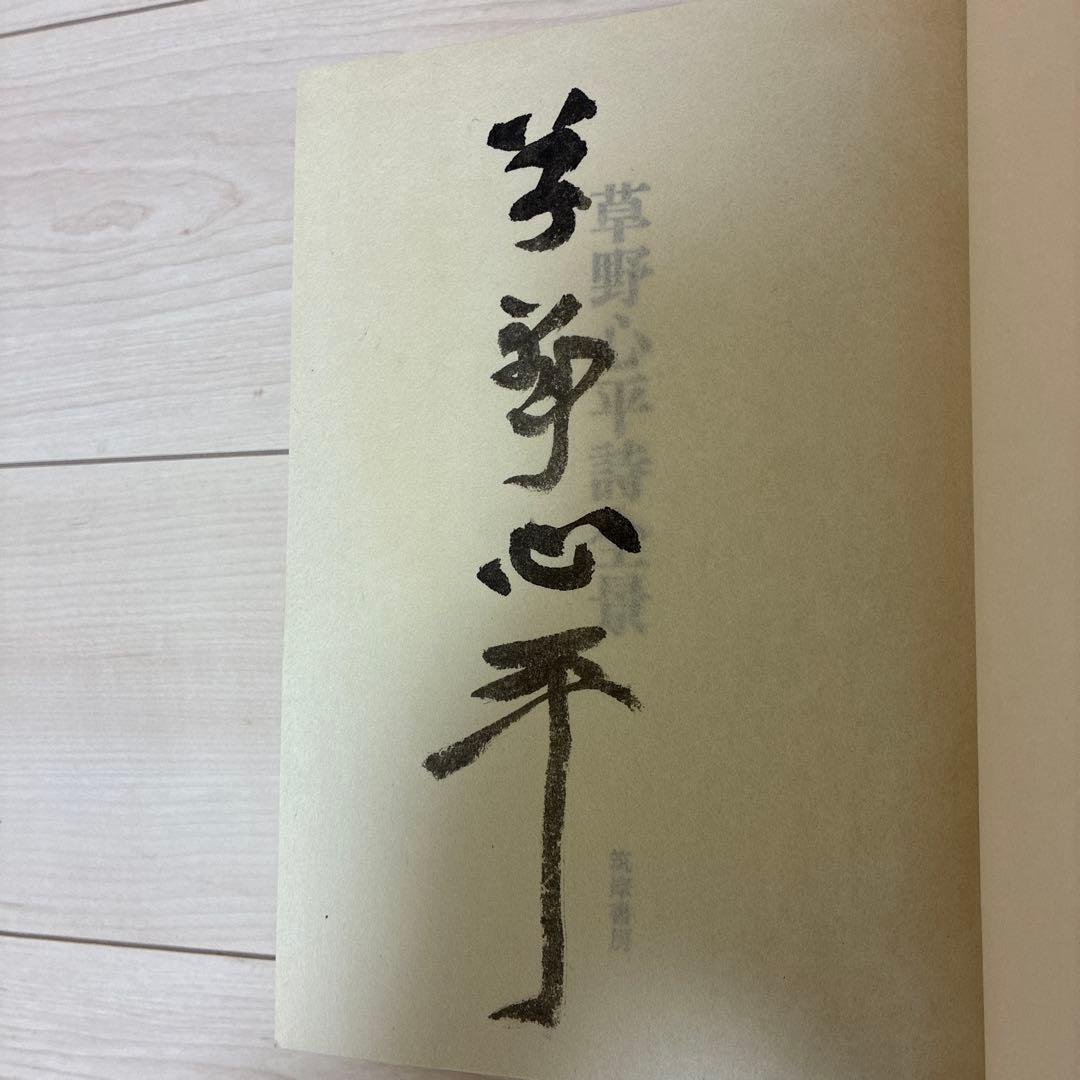 草野心平詩全景
筑摩書房
草野心平